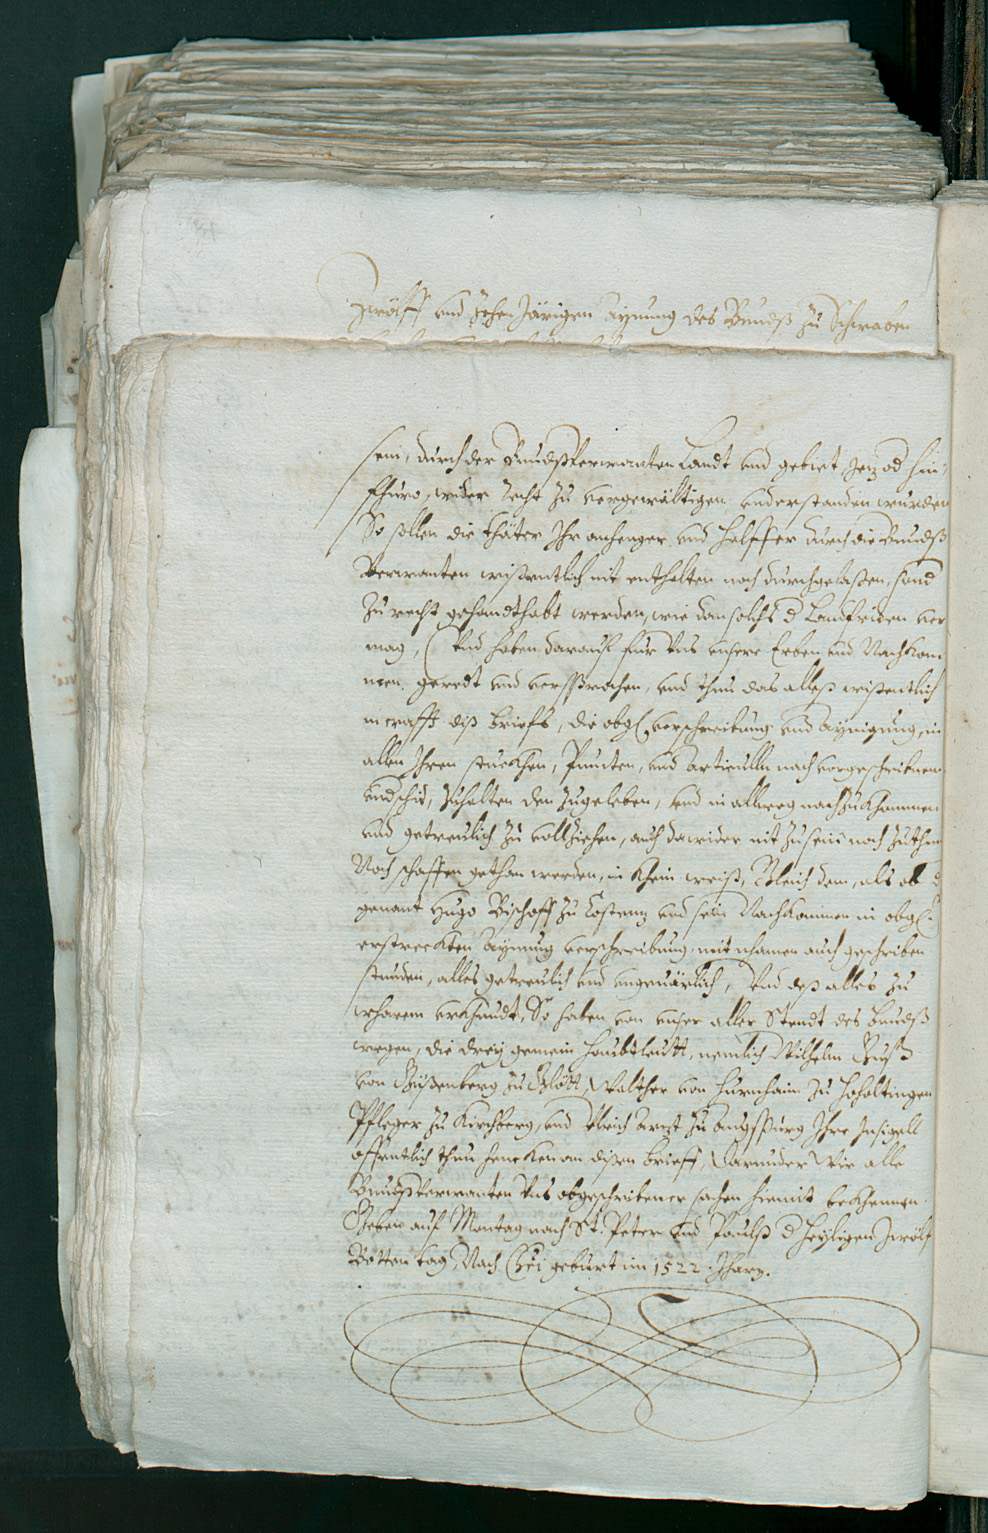 Zwölff und Zehen Järigen Aynung des Bundß zu Schwaben
sein, durch der Bundßverwanten Landt und gebiet, Jetz od hin
fhüro, wider Recht zu vergewältigen understanden wurden
So sollen die thäter Ihr anhenger und Helffer durch die Bundß
Verwanten wißentlich nit enthalten noch durchgelaßen, sond
Zu recht gehandthabt werden, wie dan solchs d Landfriden ver
mag, Und haben darauf für Uns unsere Erben und Nachkom
men geredt und versprochen, und thun das alleß wißentlich
in crafft diß brieffs, die obg verschreibung und Aynigung, in
allen Ihren stuckhen, Puncten, und Articulln nach vorgeschribnem
undschid, Zuhalten den Zugeleben, und in allweg nachzukhommen
und getreulich zu vollziehen, auch darwider nit zusein noch zuthun
Noch schaffen gethan werden, in khein weiß, Gleich dem, als ob d
genant Hugo Bischoff zu Costentz und sein Nachkommen in obg
erstreckten Aynung verschreibung mit nhamen auch geschriben
stunden, alles getreulich und ungeuärlich, Und deß alles zu
wharem urkhundt, So haben von unser aller Stendt des bundß
wegen, die drey gemein haubtleutt, nemlich Wilhelm Güß
von Güßenberg zu Glött, Walther von Hürnhaim zu Hohaltingen
Pfleger zu Kirchberg, und Ulrich Artzt zu Augspurg Ihre Insigell
offentlich thun hencken an disen brieff, Darunder Wir alle
Bundßverwanten Uns obgeschribener sachen hiemit bekhennen.
Geben auf Montag nach St. Peter und Paulß d heyligen Zwölf
Botten tag, Nach Chri geburt im 1522. Jharn.